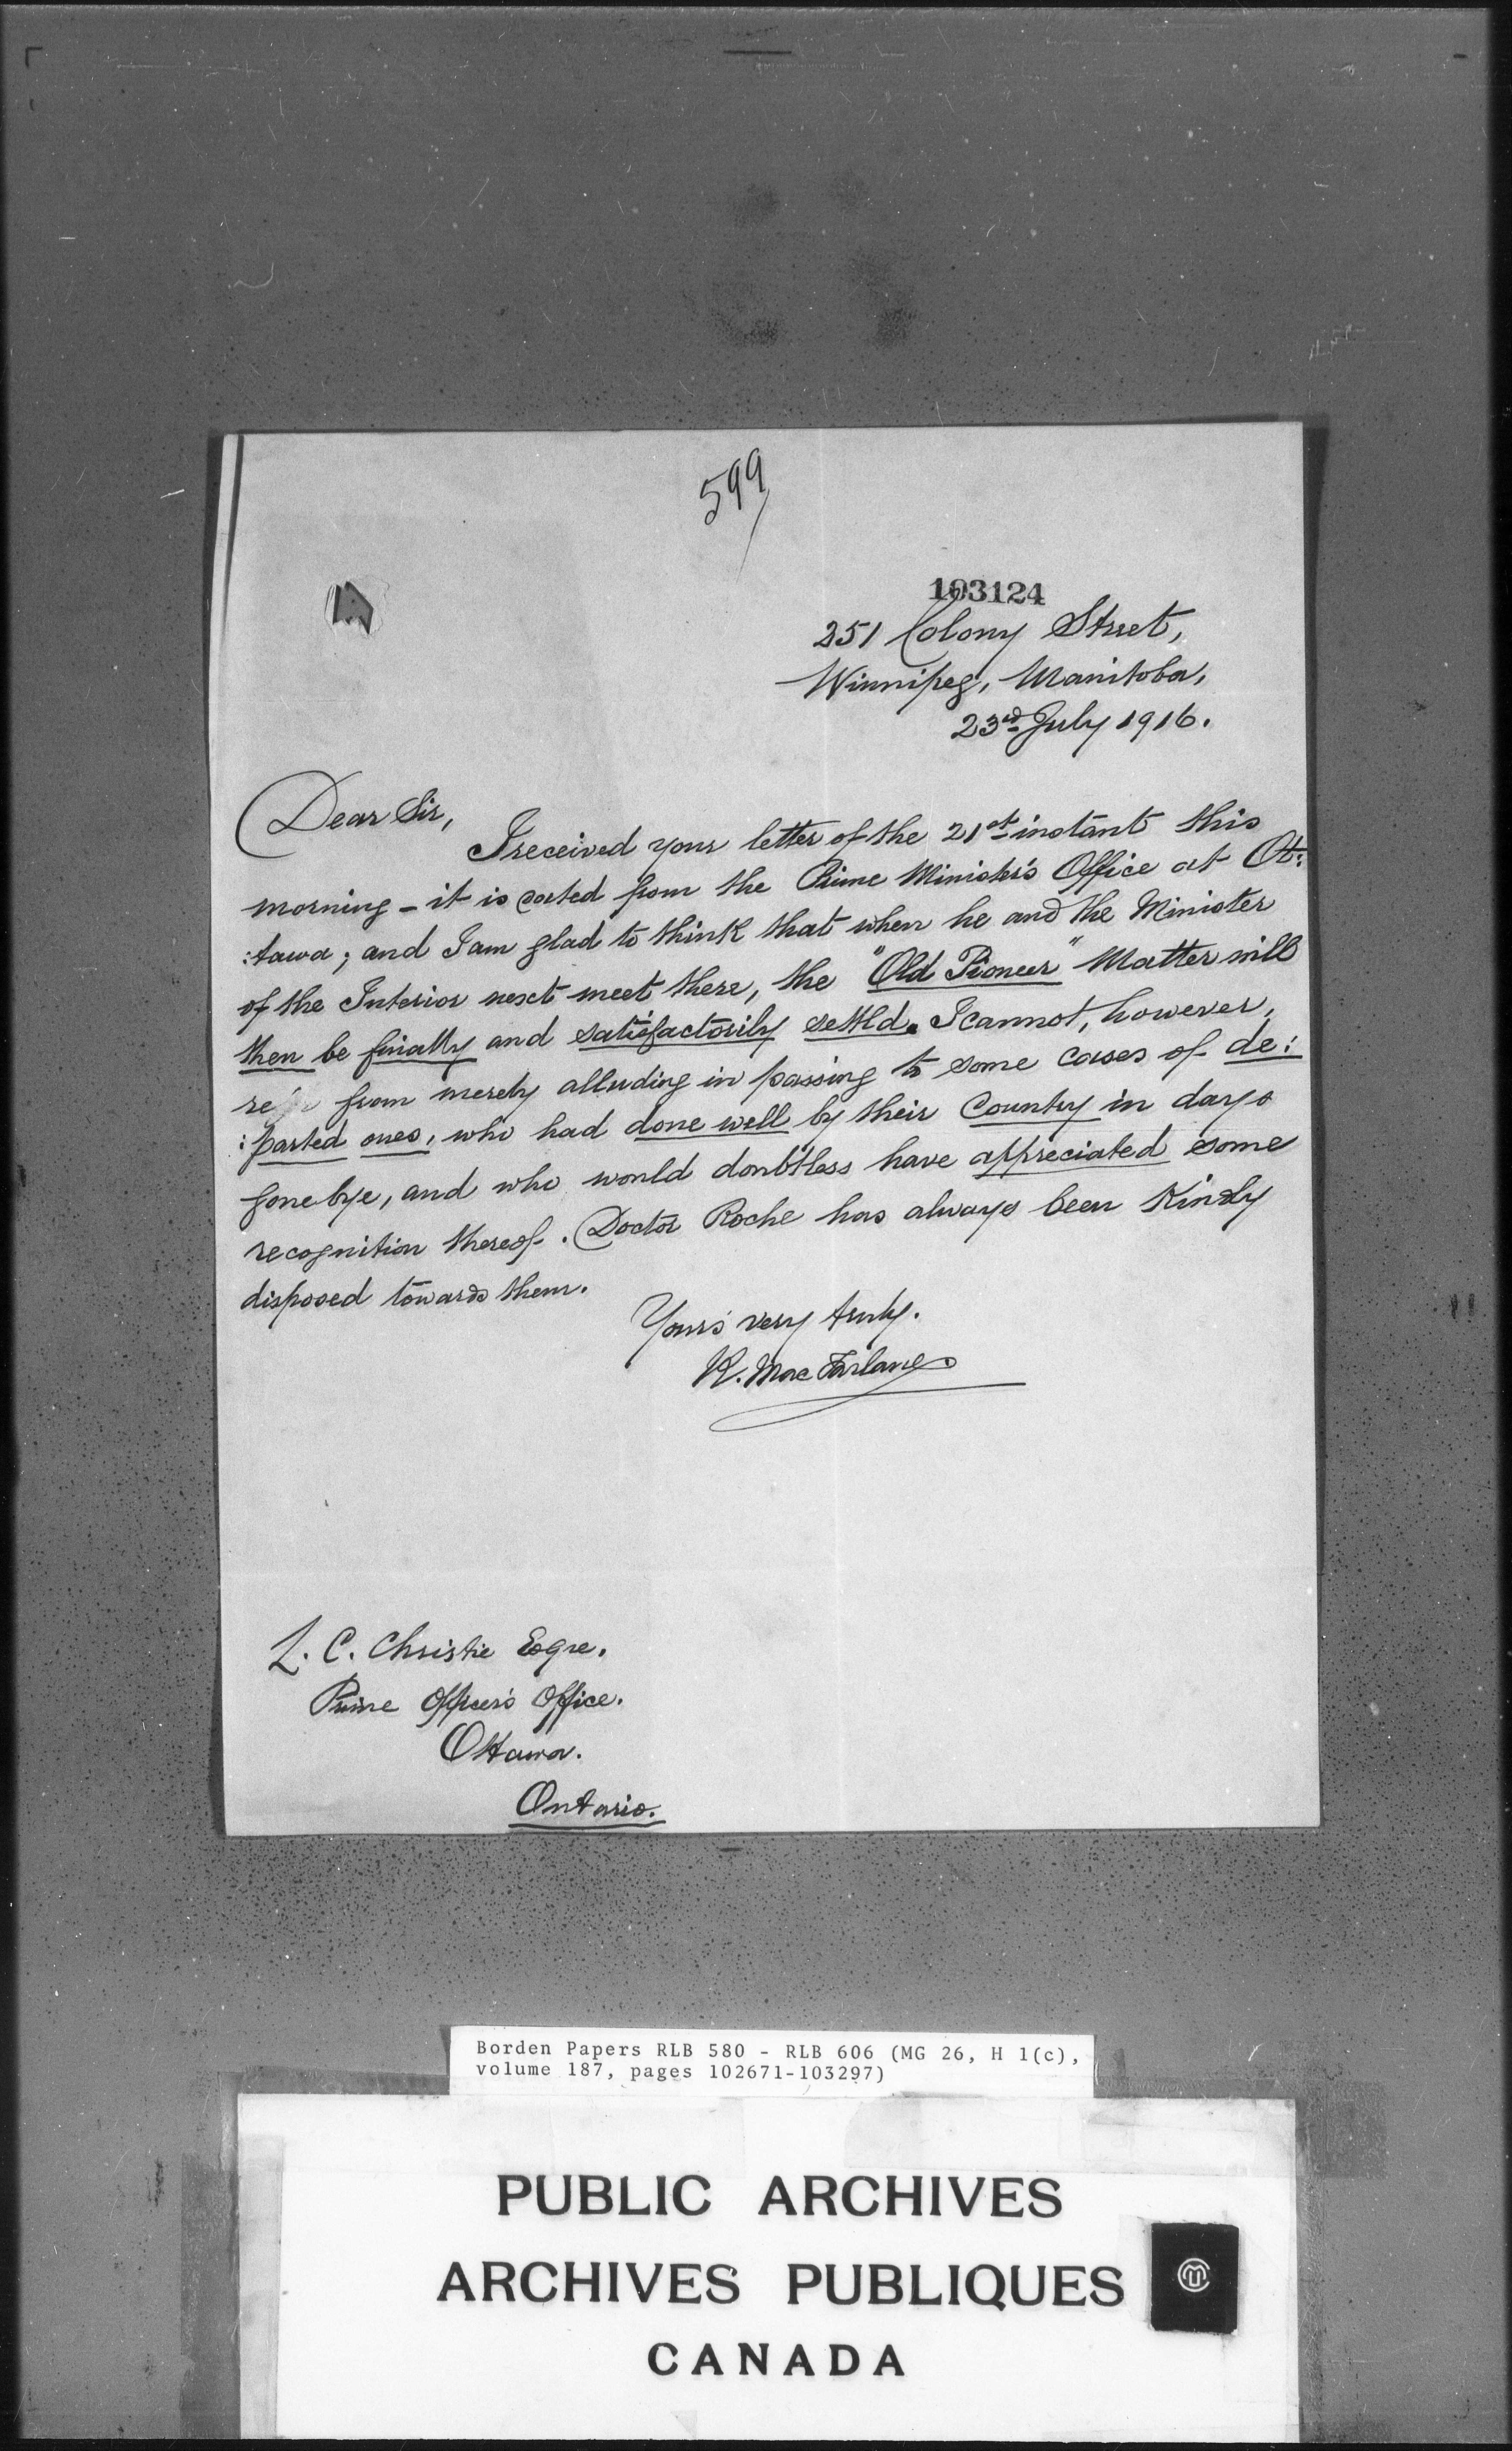 599
103124
251 Colony Street,
Winnipeg, Manitoba,
23rd July 1916.
Dear Sir,
I received your letter of the 21st instant this
morning - it is dated from the Prime Minister's Office at Ot:
:tawa; and I am glad to think that when he and the Minister
of the Interior next meet there, the "Old Pioneer" Matter will
then be finally and satisfactorily settld. I cannot, however,
from merely alluding in passing to some cases of de:
:parted ones, who had done well by their Country in days
gone bye, and who would doubtless have appreciated some
recognition thereof. Doctor Roche has always been Kindly
disposed towards them.
Yours very truly.
R. MacFarlane
L. C. Christie Esqre.
Prime Officer's Office.
Ottawa.
Ontario.
Borden Papers RLB 580 - RLB 606 (MG 26, H 1(c),
volume 187, pages 102671-103297)
PUBLIC ARCHIVES
ARCHIVES PUBLIQUES
CANADA